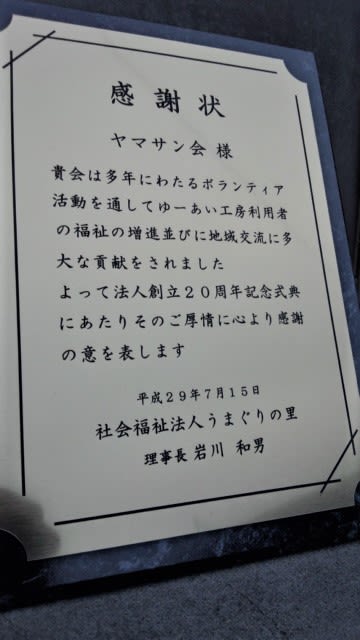 感謝状
ヤマサン会 様
貴会は多年にわたるボランティア
活動を通してゆーあい工房利用者
の福祉の増進並びに地域交流に多
大な貢献をされました
よって法人創立20周年記念式典
にあたりそのご厚情に心より感謝
の意を表します
平成29年7月15日
社会福祉法人うまぐりの里
理事長 岩川 和男